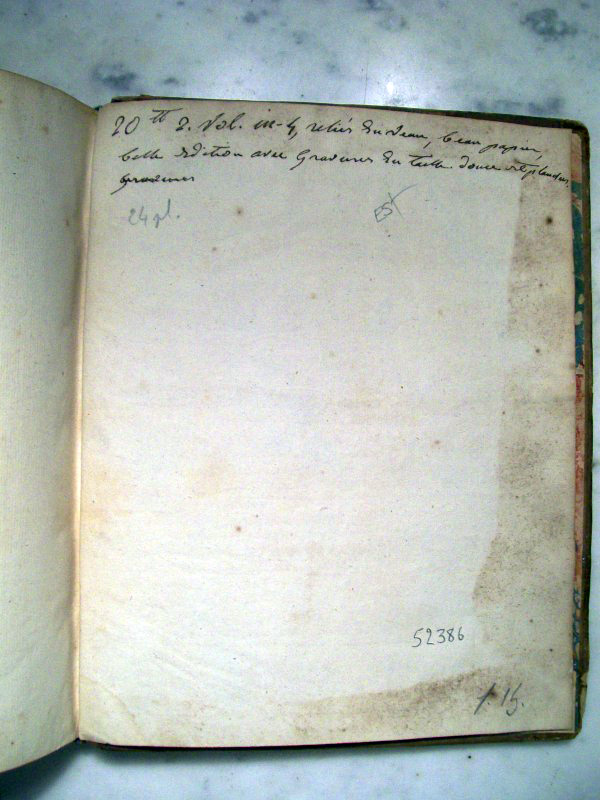 20 tt 2. Vol. in-4, reliés En veau, beau papier,
belle Edition avec Gravures En taille douce et plusieurs
gravures
24 pl.
EST
52386
1.15.